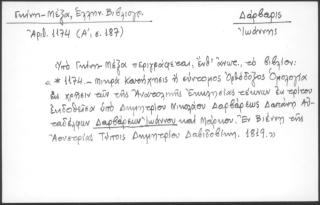 Γκίνη - Μέξα, Ἑλλην. Βιβλιογρ.
Δάρβαρις
Ἀριθ. 1174 (Α', σ. 187)
Ἰωάννης
Ὑπό Γκίνη - Μέξα περιγράφεται, ἐνθ' ἀνωτ., τό βιβλίον:
«*1174.- Μικρά Κατήχησις ἤ σύντομος Ὀρθόδοξος Ὁμολογία
εἰς χρῆσιν τῶν τῆς Ἀνατολικῆς Ἐκκλησίας τέκνων ἐκ τρίτου
ἐκδοθεῖσα ὑπό Δημητρίου Νικολάου Δαρβάρεως δαπάνῃ Αὐ-
ταδέλφων Δαρβάρεων Ἰωάννου καί Μάρκου. Ἐν Βιέννῃ τῆς
Ἀουστρίας Τύποις Δημητρίου Δαβιδοβίκη. 1819.»